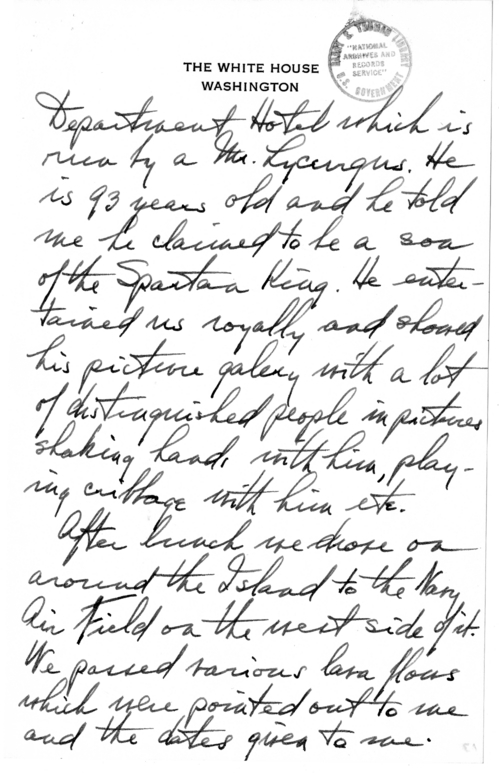 HARRY S. TRUMAN LIBRARY
"NATIONAL
ARCHIVES AND
RECORDS
SERVICE"
U.S. GOVERNMENT
THE WHITE HOUSE
WASHINGTON
Department Hotel which is
run by a Mr. Lycurgus. He
is 93 years old and he told
me he claimed to be a son
of the Spartan King. He enter-
tained us royally and showed
his picture galery with a lot
of distinguished people in pictures
shaking hands with him, play-
ing cribbage with him etc.
After lunch we drove on
around the Island to the Navy
Air Field on the west side of it.
We passed various lava flows
which were pointed out to me
and the dates given to me.